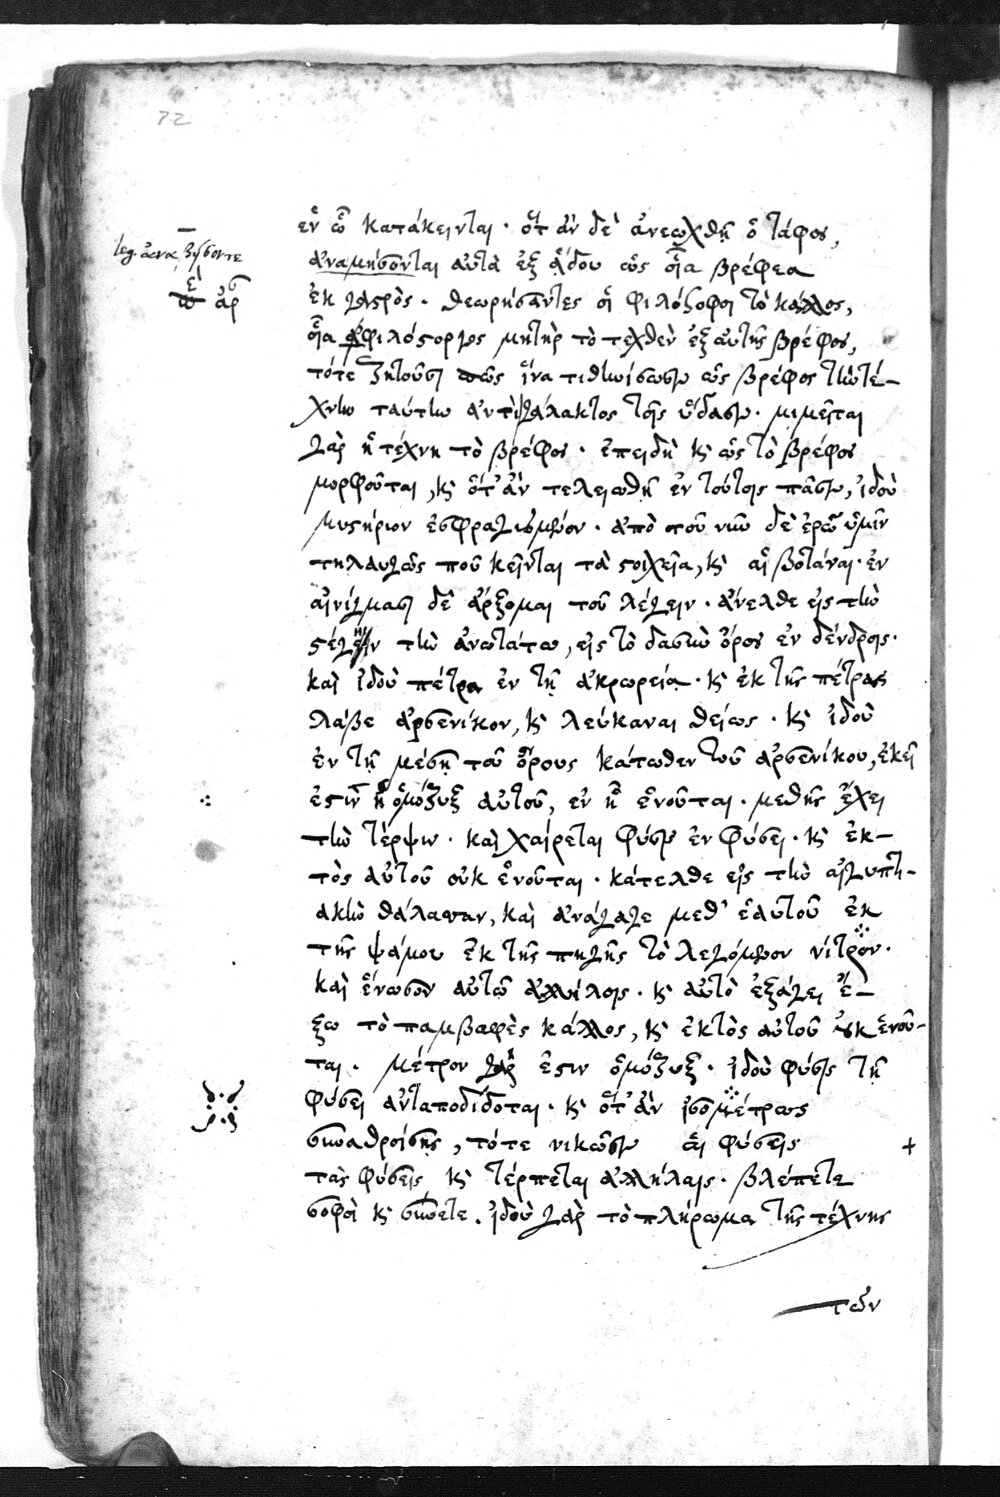 72
ἐν ᾧ κατάκεινται. ὅτ' ἀν δὲ ἀνεωχθῇ ὁ τάφος,
ἀναμήσονται αὐτὰ ἐξ ᾅδου ὡς οἷα βρέφεα
ἐκ γαστρὸς. θεωρήσαντες οἱ φιλόσοφοι τὸ κάλλος,
οἷα φιλόστοργος μήτηρ τὸ τεχθὲν ἐξ αὐτῆς βρέφος,
τότε ζητοῦσι πῶς ἵνα τιθηνίσωσιν ὡς βρέφος τὴν τέ-
χνην ταύτην ἀντὶ γάλακτος τοῖς ὕδασιν. μιμεῖται
γὰρ ἡ τέχνη τὸ βρέφος. ἐπειδὴ κ ὡς τὸ βρέφος
μορφοῦται, κ ὅτ' ἀν τελειωθῇ ἐν τούτοις πᾶσιν, ἰδοὺ
μυστήριον ἐσφραγισμένον. ἀπὸ τοῦ νῦν δὲ ἐρῶ ὑμῖν
τηλαυγῶς ποῦ κεῖνται τὰ στοιχεῖα, κ αἱ βοτάναι. ἐν
αἰνίγμασι δὲ ἄρξομαι τοῦ λέγειν. ἄνελθε εἰς τὴν
στέγην τὴν ἀνωτάτω, εἰς τὸ δασὺ ὄρος ἐν δένδροις.
καὶ ἰδοὺ πέτρα ἐν τῇ ἀκρωρείᾳ. κ ἐκ τῆς πέτρας
λάβε ἀρσενίκον, κ λεύκαναι θείως. κ ἰδοὺ
ἐν τῇ μέσῃ τοῦ ὄρους κάτωθεν τοῦ ἀρσενίκου, ἐκεῖ
ἐστὶν ἡ ὁμόζυξ αὐτοῦ, ἐν ᾗ ἑνοῦται. μεθ' ἧς ἔχει
τὴν τέρψιν. καὶ χαίρεται φύσις ἐν φύσει. κ ἐκ-
τὸς αὐτοῦ οὐκ ἑνοῦται. κάτελθε εἰς τὴν αἰγυπτι-
ακὴν θάλασσαν, καὶ ἀνάγαγε μεθ' ἑαυτοῦ ἐκ
τῆς ψάμου ἐκ τῆς πηγῆς τὸ λεγόμενον νίτρον.
καὶ ἕνωσον αὐτῶ ἀλλήλοις. κ αὐτὸ ἐξάγει ἔ-
ξω τὸ παμβαφὲς κάλλος, κ ἐκτὸς αὐτοῦ οὐκ ἑνοῦ-
ται. μέτρον γάρ ἐστιν ὁμόζυξ. ἰδοὺ φύσις τῇ
φύσει ἀνταποδίδοται. κ ὅτ' ἀν ἰσομέτρως
συναθροίσῃς, τότε νικῶσιν αἱ φύσεις
τὰς φύσεις κ τέρπεται ἀλλήλαις. βλέπετε
σοφοὶ κ σύνετε. ἰδοὺ γὰρ τὸ πλήρωμα τῆς τέχνης
τῶν